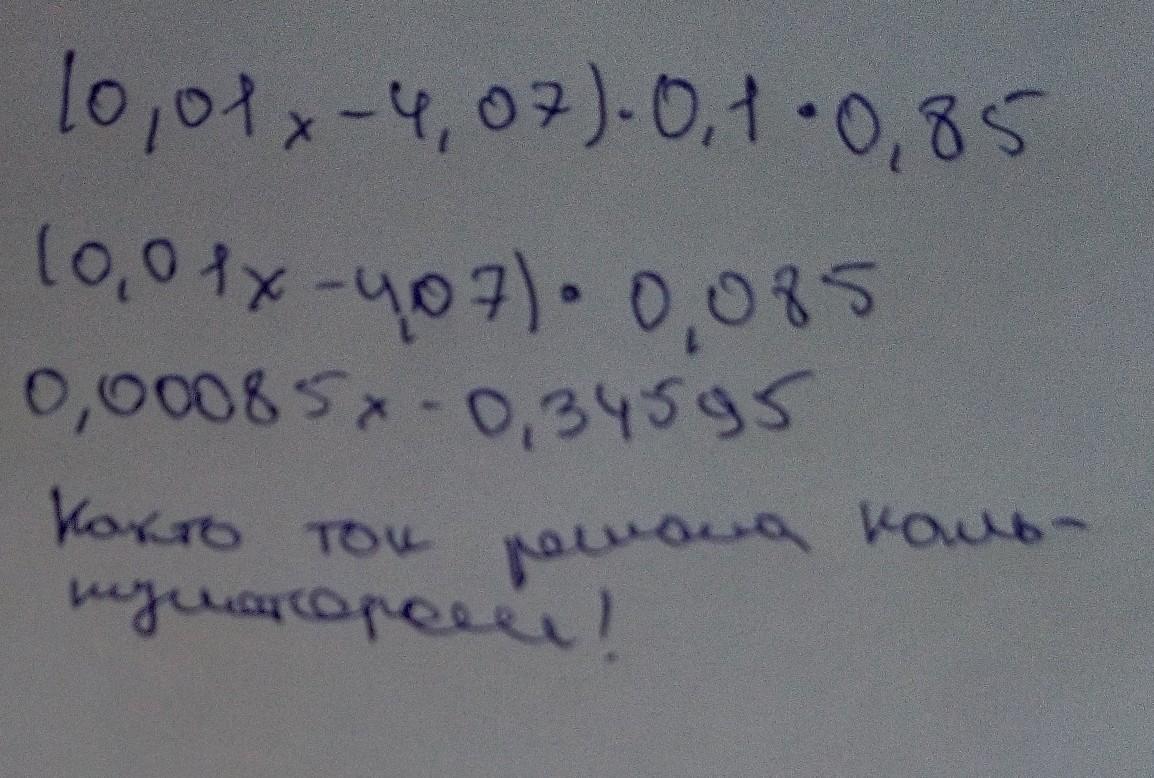 (0,01x-4,07)·0,1·0,85
(0,01x-4,07)·0,085
0,00085x-0,34595
Както так решала каль-
кулятором!